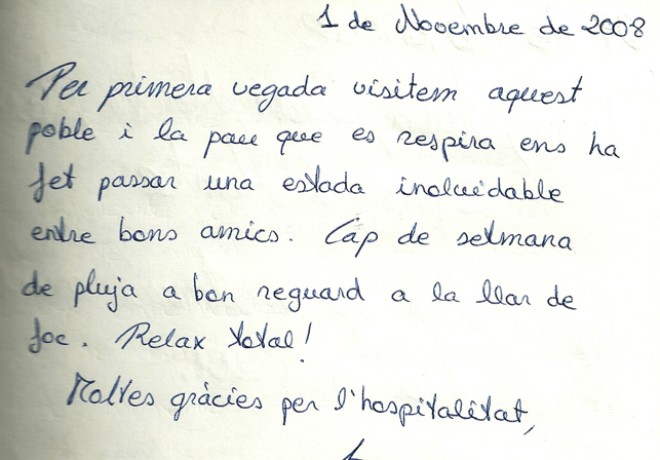 1 de Novembre de 2008
Per primera vegada visitem aquest
poble i la pau que es respira ens ha
fet passar una estada inoluidable
entre bons amics. Cap de setmana
de pluja a bon reguard a la llar de
foc. Relax total!
Moltes gràcies per l'hospitalitat,